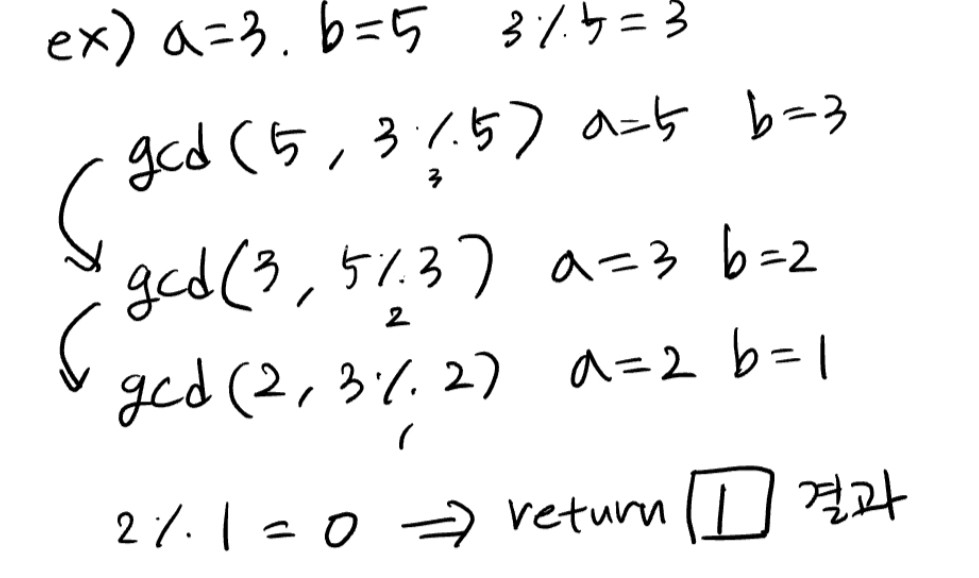 ex) a=3. b=5 3%5=3
gcd(5, 3%5) a=5 b=3
3
gcd(3, 5%3) a=3 b=2
2
gcd(2, 3%2) a=2 b=1
1
2%1=0 ⇒ return 1 결과